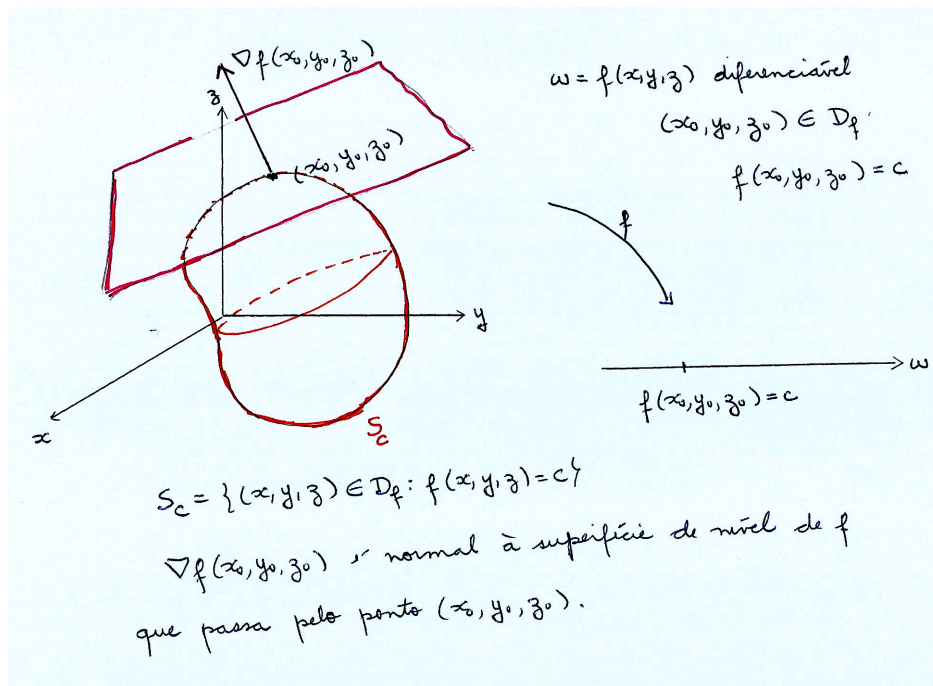 ∇f(x₀,y₀,z₀)
z
(x₀,y₀,z₀)
y
x
S_c
w = f(x,y,z) diferenciável
(x₀,y₀,z₀) ∈ D_f
f(x₀,y₀,z₀) = c
f
w
f(x₀,y₀,z₀) = c
S_c = {(x,y,z) ∈ D_f : f(x,y,z) = c}
∇f(x₀,y₀,z₀) é normal à superfície de nível de f
que passa pelo ponto (x₀,y₀,z₀).